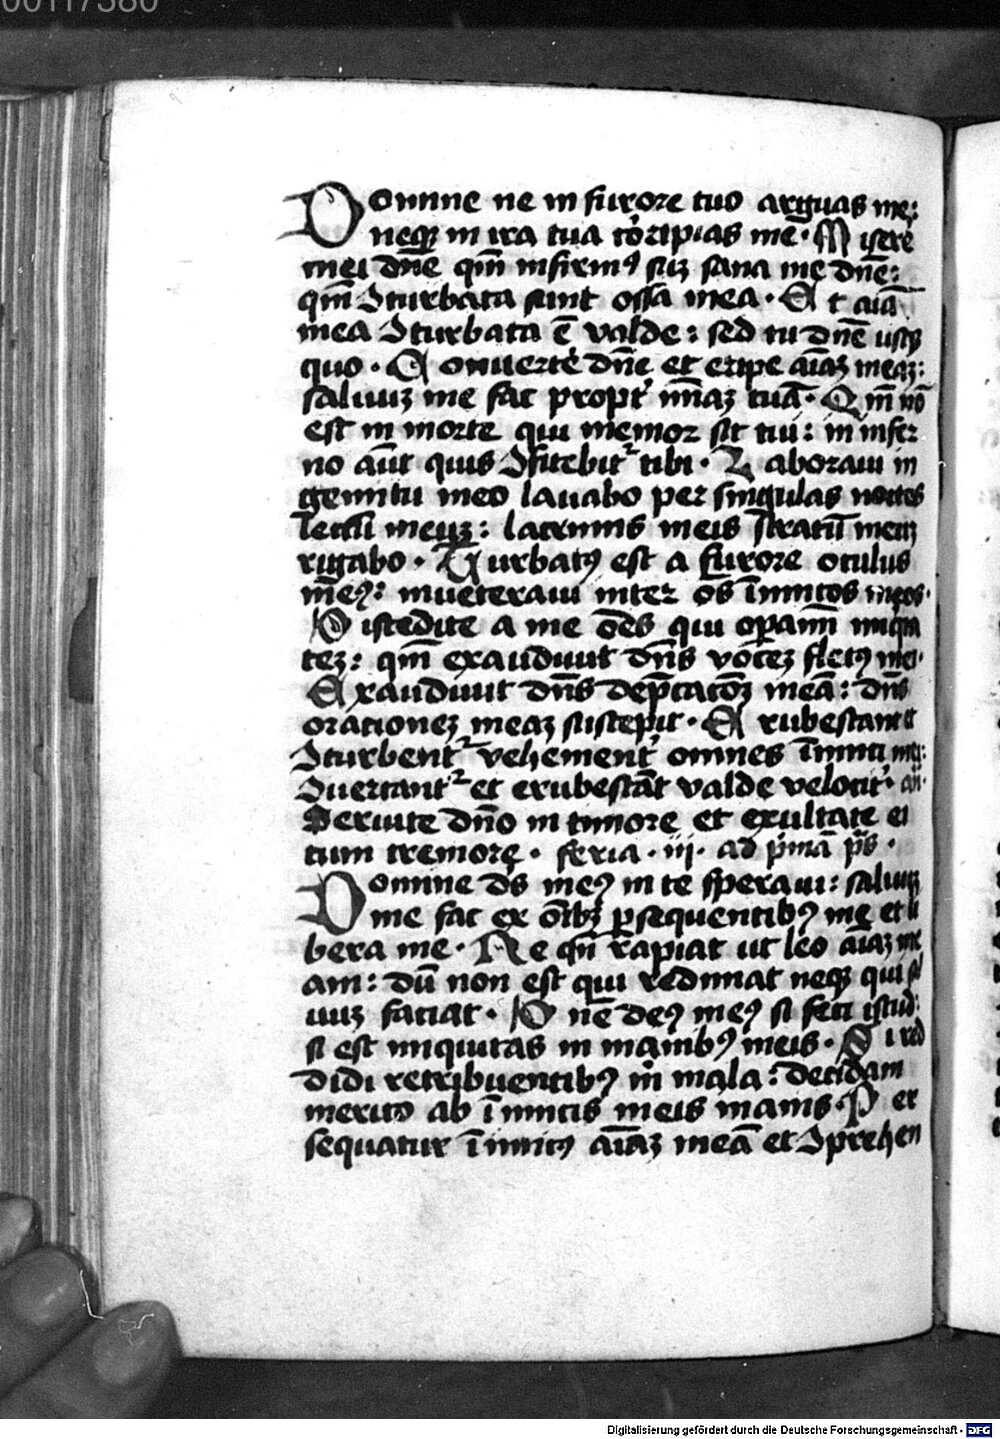 00117380
Domine ne in furore tuo arguas me:
neqꝫ in ira tua corripias me. Misere
mei dn̄e qm̄ infirmꝰ suꝫ sana me dn̄e:
qm̄ ꝯturbata sunt ossa mea. Et aīa
mea ꝯturbata ē valde: sed tu dn̄e usqꝫ
quo. Conuerte dn̄e et eripe aīaꝫ meaꝫ:
saluuꝫ me fac propt' mīaꝫ tuā. Qm̄ nō
est in morte qui memor sit tui: in infer
no aūt quis ꝯfitebit᷑ tibi. Laboraui in
gemitu meo lauabo per singulas noctes
lectū meuꝫ: lacrimis meis stratū meuꝫ
rigabo. Turbatꝰ est a furore oculus
meꝰ: inueteraui inter os īimicos meos.
Discedite a me oēs qui opamī iniqita
teꝫ: qm̄ exaudiuit dn̄s voceꝫ fletꝰ mei.
Exaudiuit dn̄s dep̄catoꝫ meā: dn̄s
orationeꝫ meaꝫ suscepit. Erubescant et
ꝯturbent᷑ vehement' omnes īimici mei:
ꝯuertant᷑ et erubescāt valde velocit'. an̄.
Seruite dn̄o in timore et exultate ei
cum tremore. feria .iij. ad p̄mā p̄s.
Domine ds̄ meꝰ in te speraui: saluuꝫ
me fac ex oībꝫ ꝑsequentibꝰ me et li
bera me. Ne qn̄ rapiat ut leo aīaꝫ me
am: dū non est qui redimat neqꝫ qui sal
uuꝫ faciat. Dn̄e deꝰ meꝰ si feci istud:
si est iniquitas in manibꝰ meis. Si red
didi retribuentibꝰ m̄ mala: decidam
merito ab īimicis meis inanis. Per
sequatur īimicꝰ aīaꝫ meā et ꝯprehen
Digitalisierung gefördert durch die Deutsche Forschungsgemeinschaft - DFG